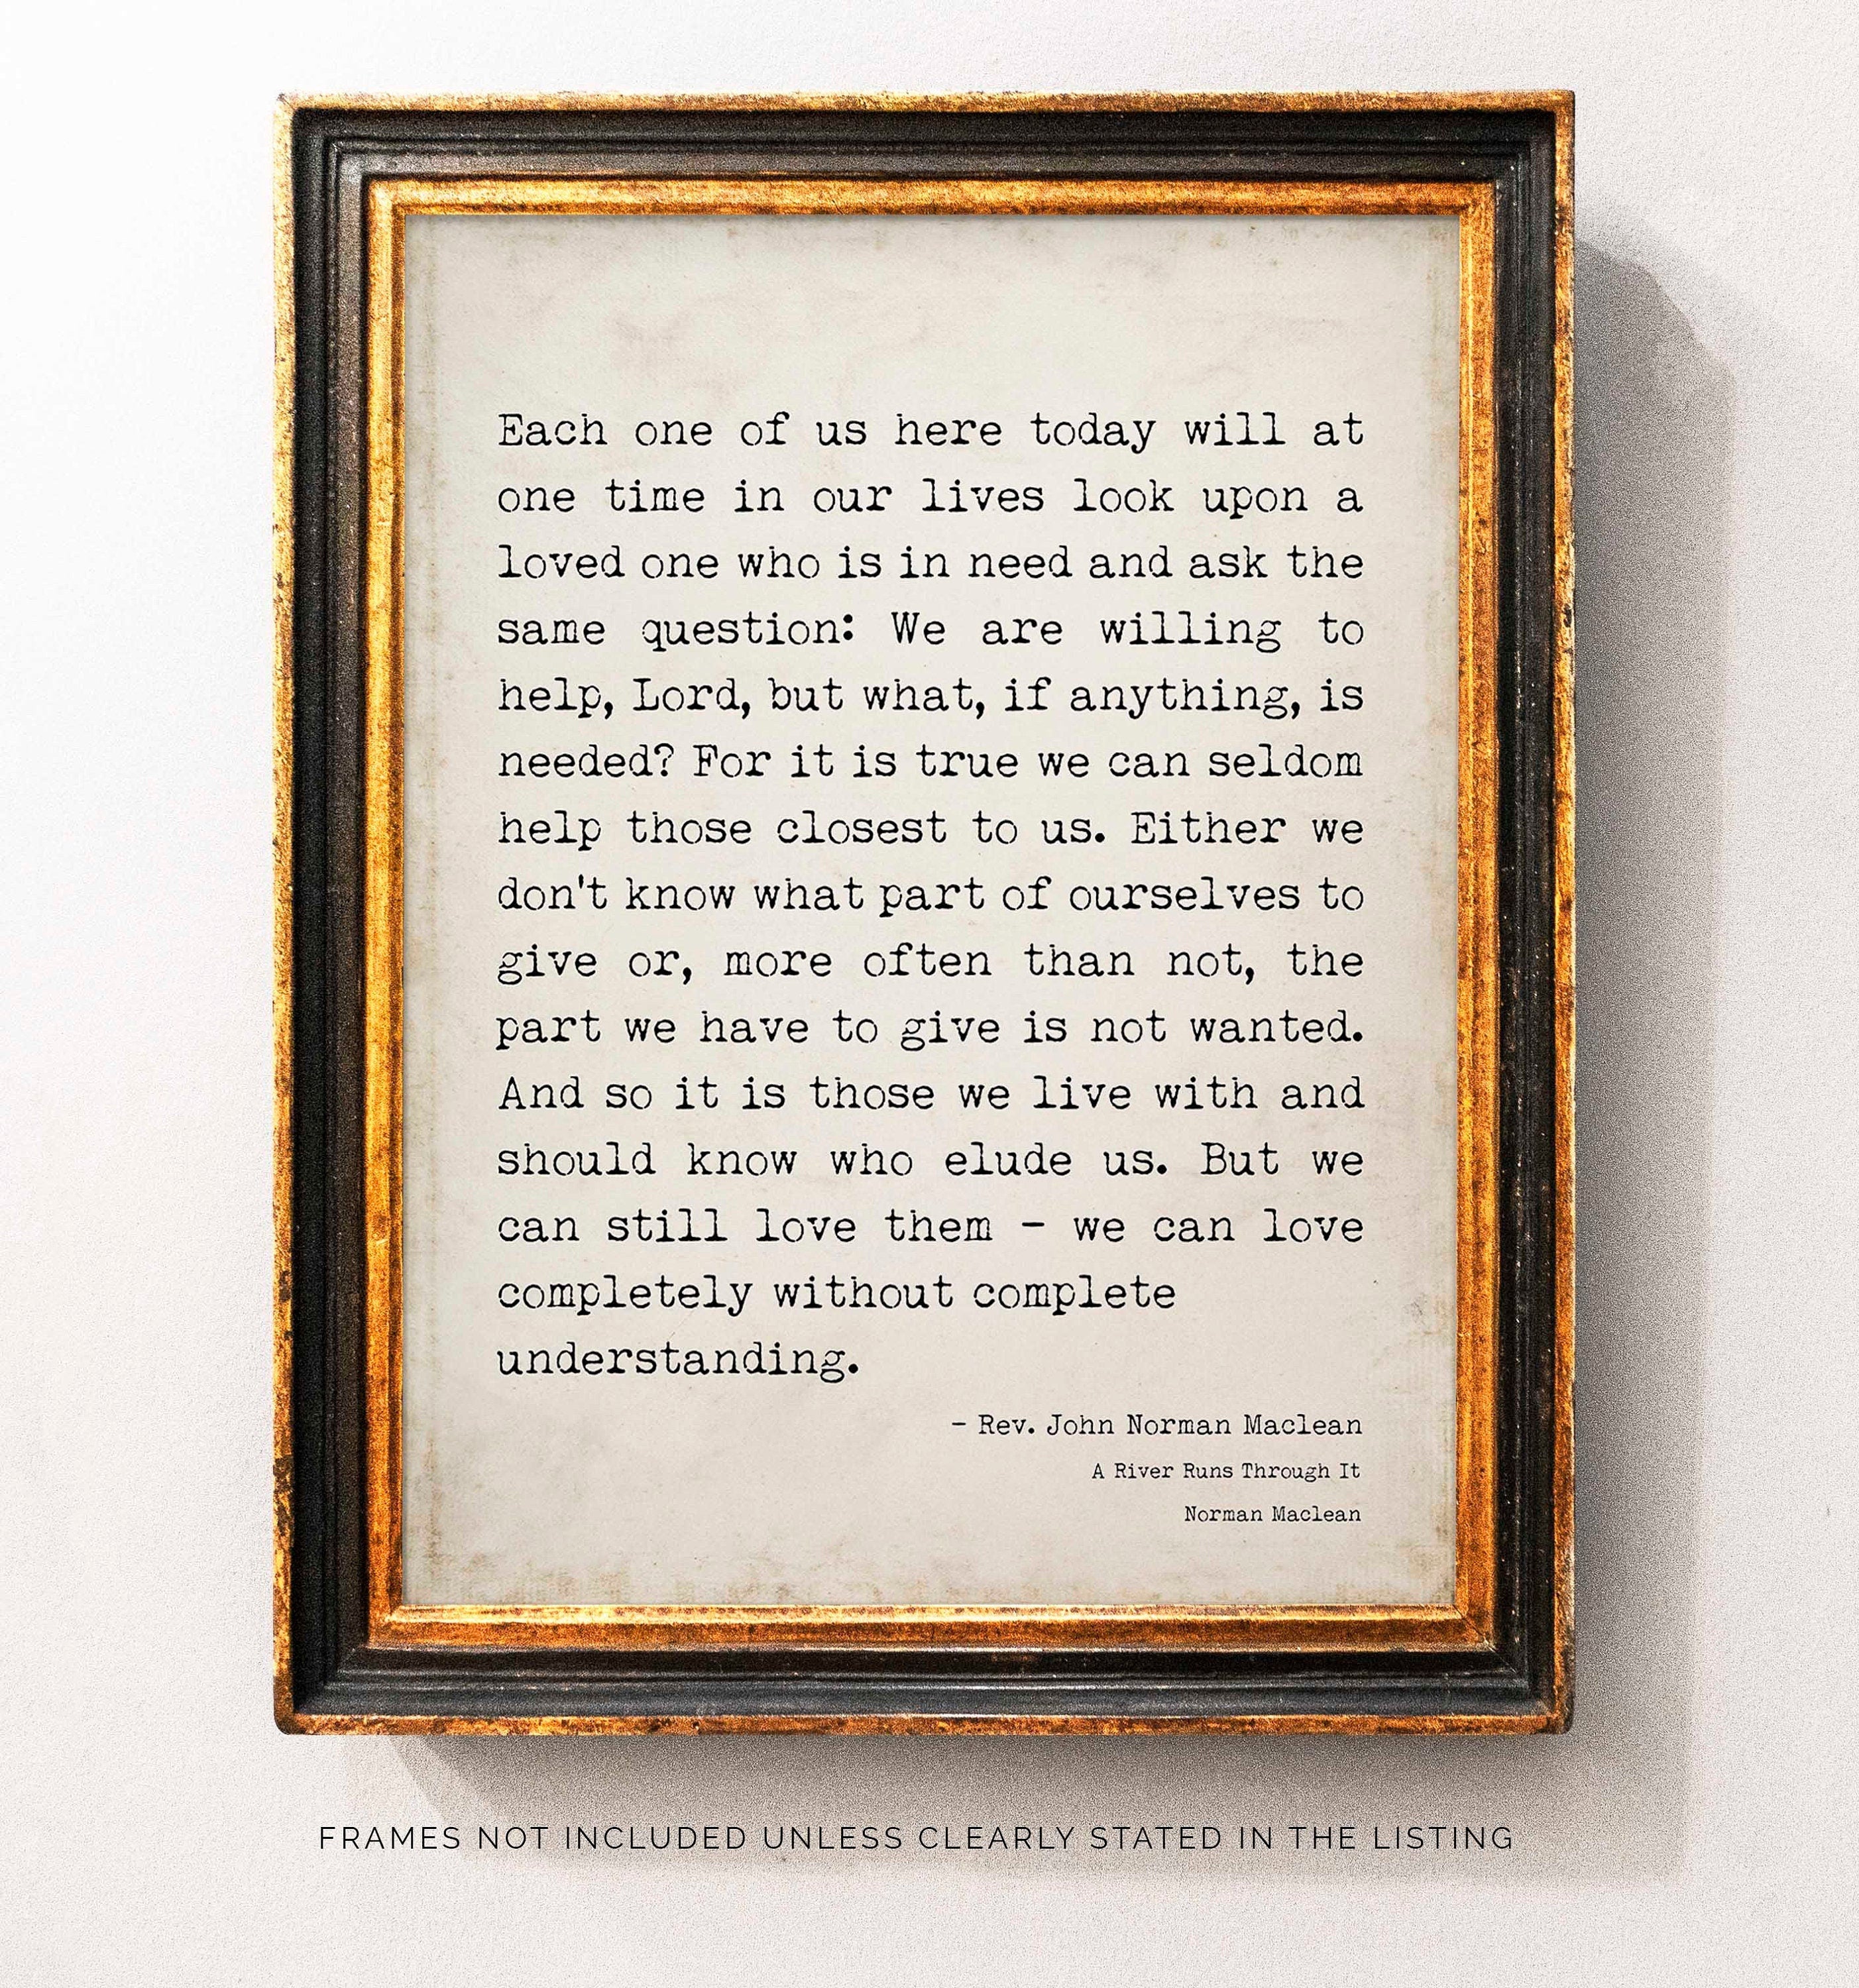 Each one of us here today will at
one time in our lives look upon a
loved one who is in need and ask the
same question: We are willing to
help, Lord, but what, if anything, is
needed? For it is true we can seldom
help those closest to us. Either we
don't know what part of ourselves to
give or, more often than not, the
part we have to give is not wanted.
And so it is those we live with and
should know who elude us. But we
can still love them - we can love
completely without complete
understanding.
- Rev. John Norman Maclean
A River Runs Through It
Norman Maclean
FRAMES NOT INCLUDED UNLESS CLEARLY STATED IN THE LISTING